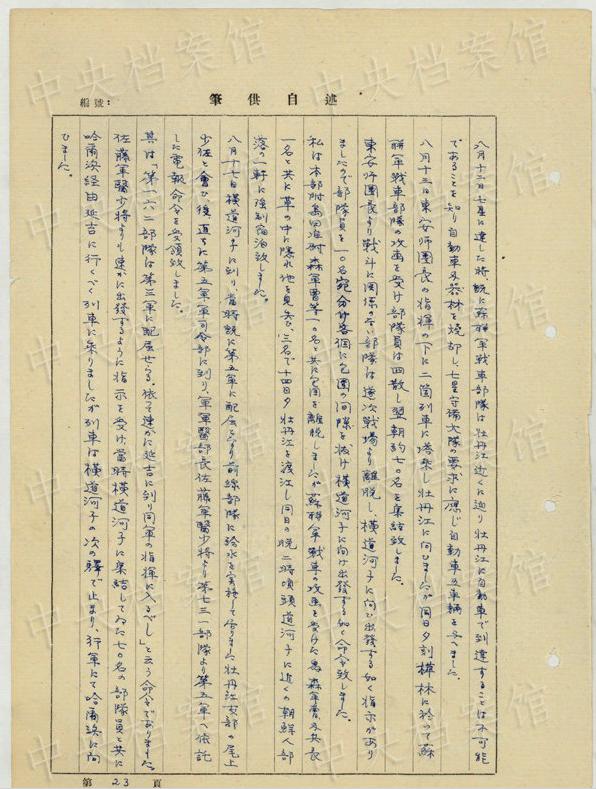 編號：
筆供自述
八月十二日七星に達した時既に蘇聯軍戰車部隊は牡丹江近くに迫り牡丹江に自動車で到達することは不可能
であることを知り自動車及器材を燒却し、七星守備大隊の要求に應じ自動車五車輛を与へました。
八月十三日東安師團長の指揮の下に二箇列車に搭乘し牡丹江に向ひましたが同日夕刻樺林に於って蘇
聯軍戰車部隊の攻画を受け部隊員は四散し翌朝約七〇名を集結致しました。
東安師團長より戰斗に関係のない部隊は逐次戰場より離脱し、橫道河子に向ひ出發する如く指示があり
ましたので部隊員を一〇名宛分け各個に包囲の间隙を拔け橫道河子に向け出發する如く命令致しました。
私は本部附島田准尉森軍曹等一〇名と共に包囲を離脱しましたが蘇聯軍戰車の攻画を受けた爲森軍曹及兵長
一名と共に草の中に隱れ他を見失ひ、三名で十四日夕牡丹江を渡江し同日の晩二時頃頭道河子に近くの朝鮮人部
落の一軒に强制宿泊致しました。
八月十七日橫道河子に到り、當時既に第五軍に配屬となり前線部隊に給水を実施して居りました牡丹江支部の尾上
少佐と會ひ、後、直ちに第五軍司令部に到り、軍軍醫部長佐藤軍醫少將より第七三一部隊より第五軍へ依託
した電報命令を受領致しました。
其は「第一六二部隊は第三軍に配屬せらる。依って速かに延吉に到り同軍の指揮に入るべし」と云う命令でありました。
佐藤軍醫少將よりも速かに出發するように指示を受け當時橫道河子に集結してゐた七〇名の部隊員と共に
哈爾濱経由延吉に行くべく列車に乘りましたが列車は橫道河子の次の驛で止まり、行軍にて哈爾濱に向
ひました。
第23頁
中央档案馆